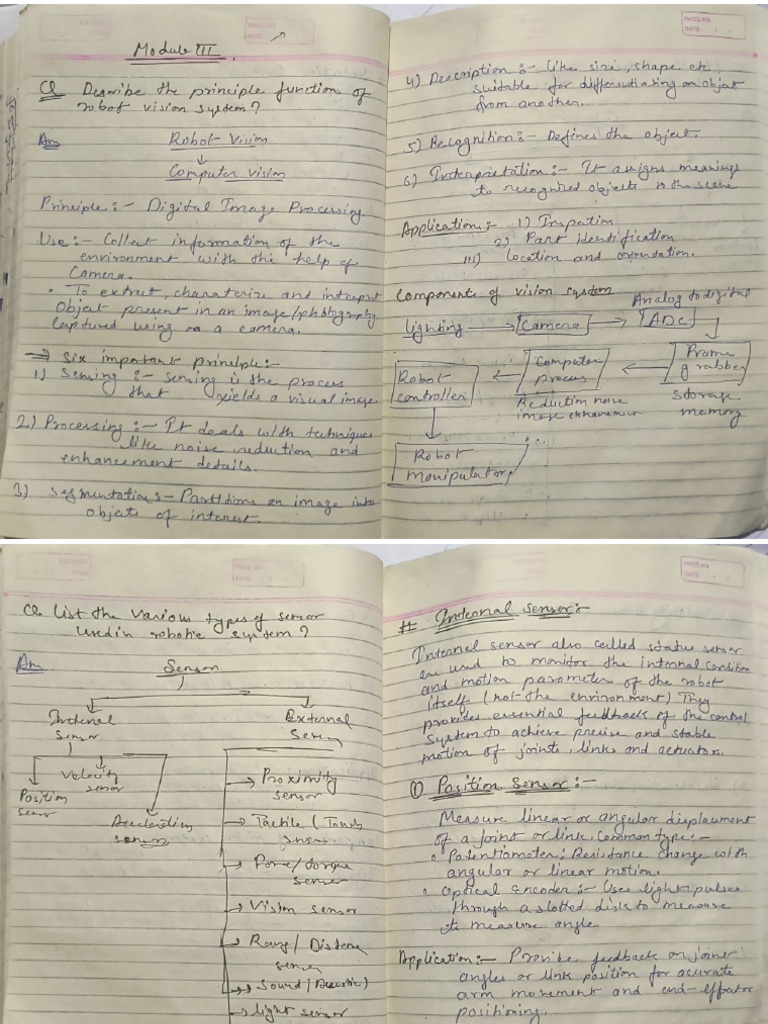 Module III
Q Describe the principle function of
robot vision system?
Ans Robot Vision
↓
Computer vision
Principle:- Digital Image Processing.
Use:- Collect information of the
environment with the help of
Camera.
• To extract, charaterize and interpret
Object present in an image/photography
Captured using on a camera.
⇒ Six important principle:-
1) Sensing:- sensing is the process
that yields a visual image
2.) Processing:- It deals with techniques
like noise reduction and
enhancement details.
3) Segmentation:- Partitions an image into
objects of interest.
4) Description:- like size, shape etc,
suitable for differentiating on object
from another.
5) Recognition:- Defines the object.
6) Interpretation:- It assigns meanings
to recognized objects in the scene
Application:- 1) Inspation
2) Part identification
III) Location and orientation.
Components of vision system
Analog to digital
lighting → Camera → ADC
Robot controller ← Computer process ← Frame grabber
Reduction noise
image enhancement
storage
memory
Robot
manipulator
Q. List the various types of sensor
used in robotic system?
Ans Sensor
Internal
sensor
External
Sensor
Position
sensor
Velocity
sensor
Acceleration
sensor
→ Proximity
sensor
→ Tactile (Touch
sensor
→ Force/torque
sensor
→ Vision sensor
→ Range/Distance
sensor
→ Sound (Acoustic)
→ light sensor
# Internal sensor:-
Internel sensor also called status sensor
are used to monitor the internal condition
and motion parameter of the robot
itself (not the environment) They
provides essential feedback of the control
System to achieve precise and stable
motion of joints, links and actuators.
① Position Sensor:-
Measure linear or angular displacement
of a joint or link. Common type:-
• Potentiometer: Resistance change with
angular or linear motion.
• Optical Encoder:- Uses light pulses
through a slotted disk to measure
to measure angle.
Application:- Provides feedback on joiner
angles or link position for accurate
arm movement and end-effector
positioning.